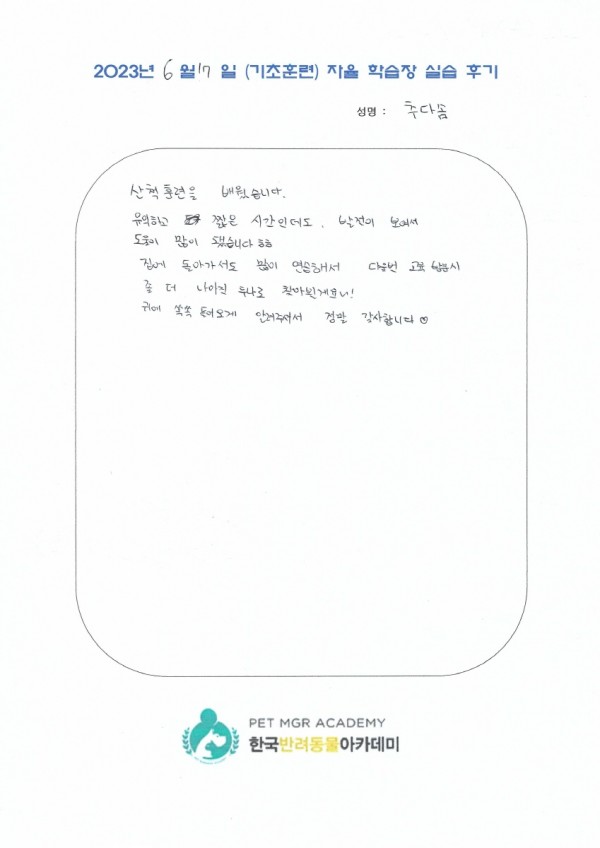 2023년 6월 17일 (기초훈련) 자율 학습장 실습 후기
성명 : 추다솜
산책훈련을 배웠습니다.
유익하고 짧은 시간인데도, 발전이 보여서
도움이 많이 됐습니다 ㅎㅎ
집에 돌아가서도 많이 연습해서 다음번 교육
좀 더 나아진 두나로 찾아뵐게요!
귀에 쏙쏙 들어오게 알려주셔서 정말 감사합니다
PET MGR ACADEMY
한국반려동물아카데미